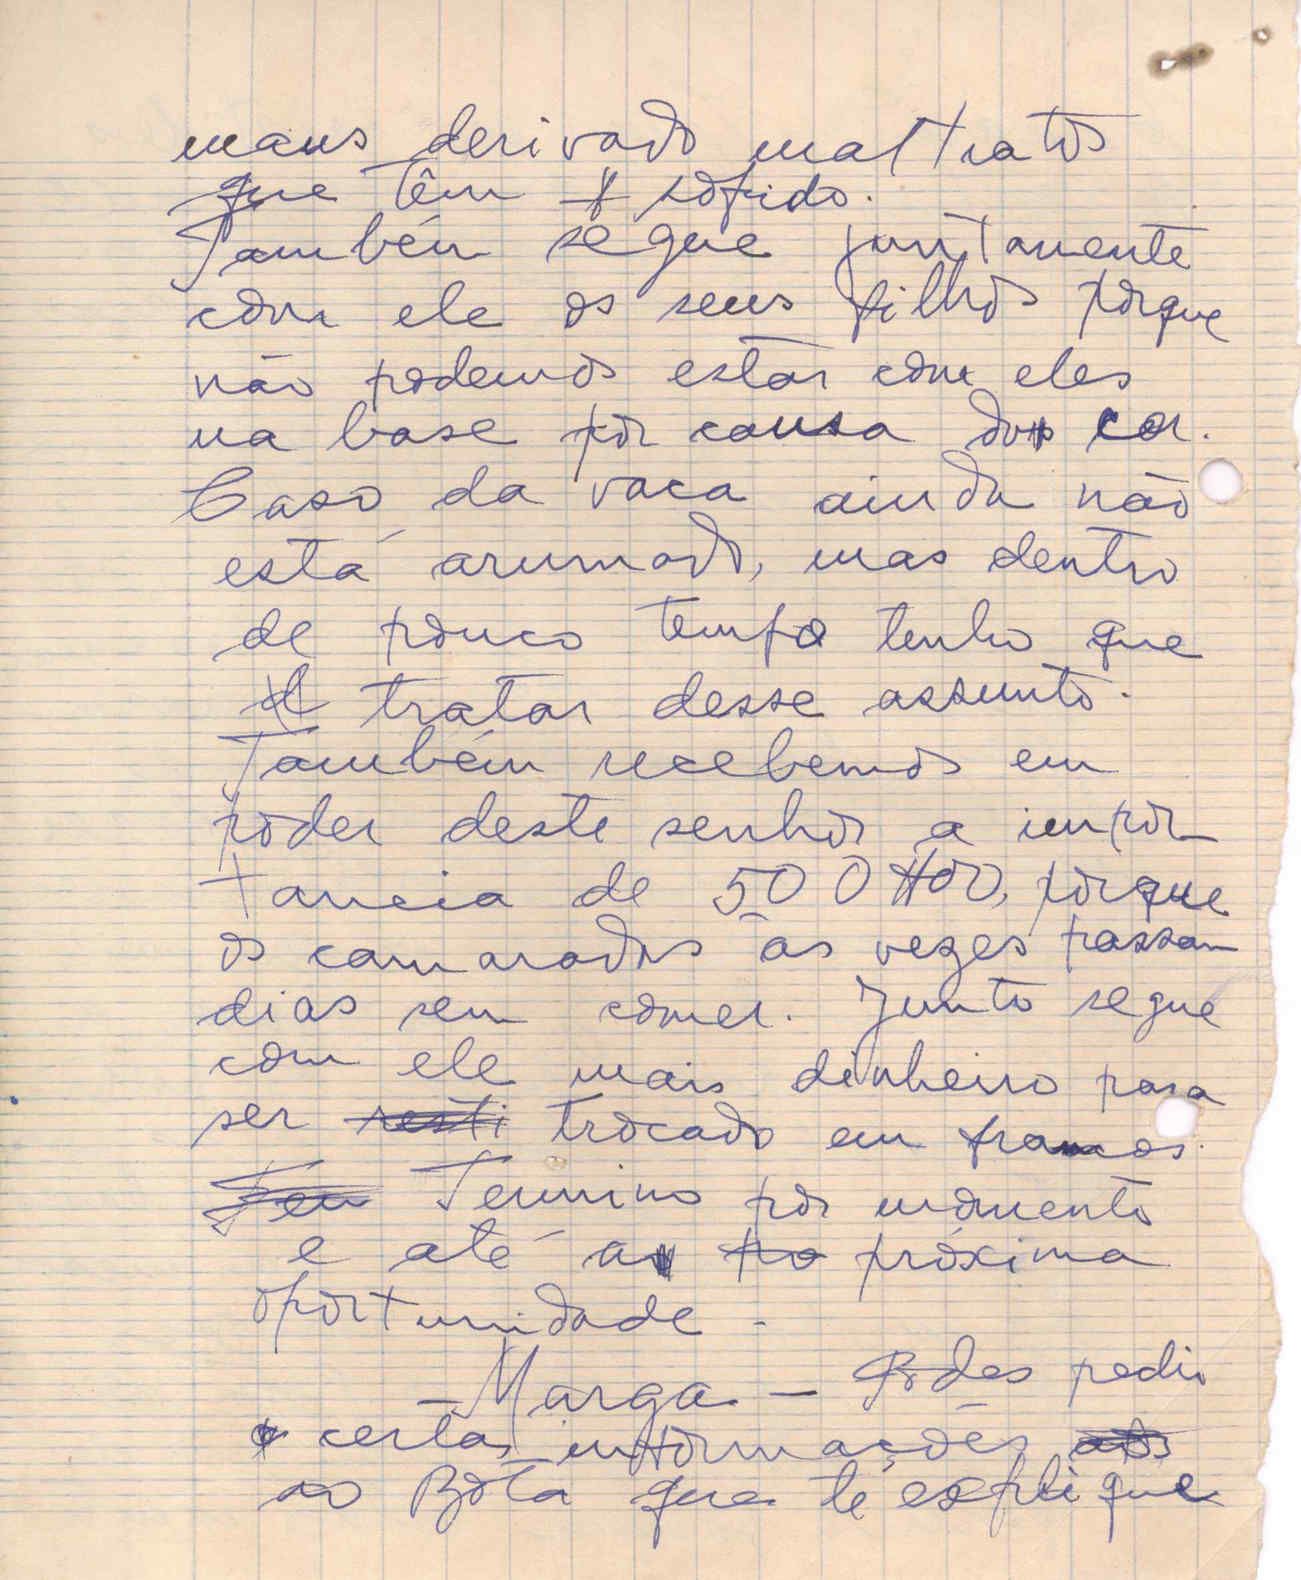 maus derivado maltratos
que têm sofrido.
Também segue juntamente
com ele os seus filhos porque
não podemos estar com eles
na base por causa do cor.
Caso da vaca ainda não
está arumado, mas dentro
de pouco tempo tenho que
tratar desse assunto.
Também recebemos em
poder deste senhor a impor
tancia de 500$00, porque
os camaradas às vezes passam
dias sem comer. Junto segue
com ele mais dinheiro para
ser trocado em francos.
Termino por momento
e até a próxima
oportunidade.
Marga — Podes pedir
certas informações
ao Bota que te explique